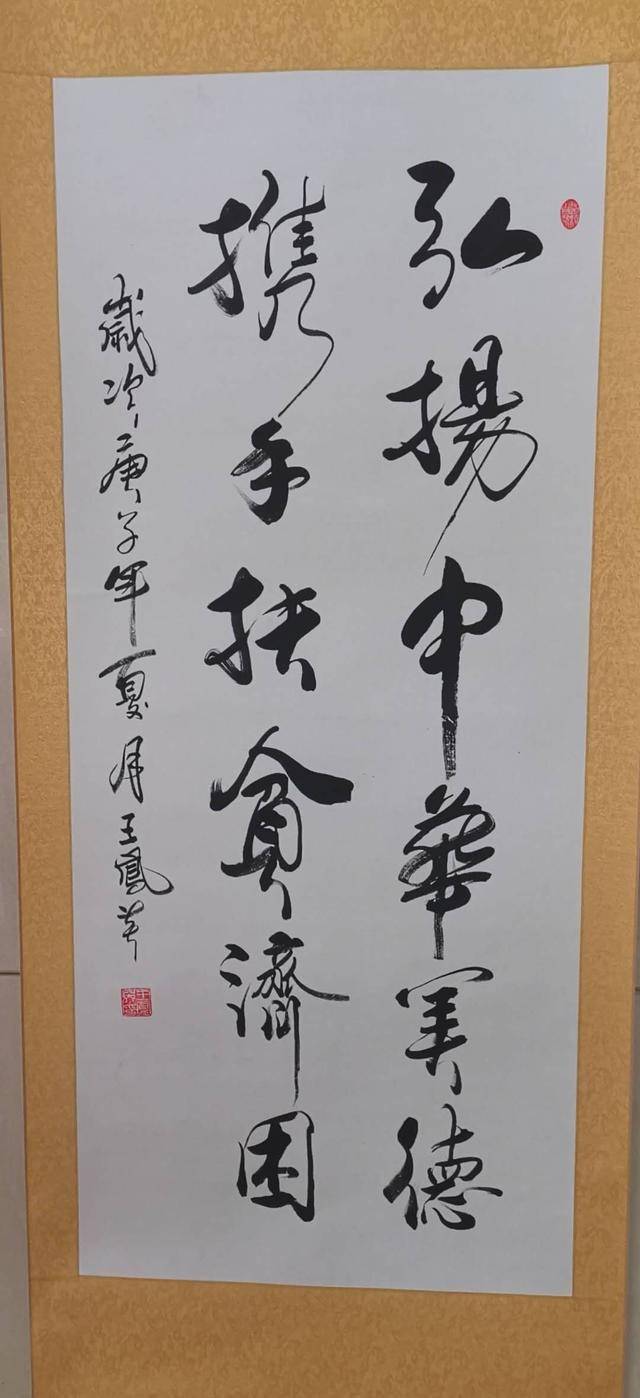 弘揚中華美德
携手扶貧濟困
歲次庚子年夏月王鳳